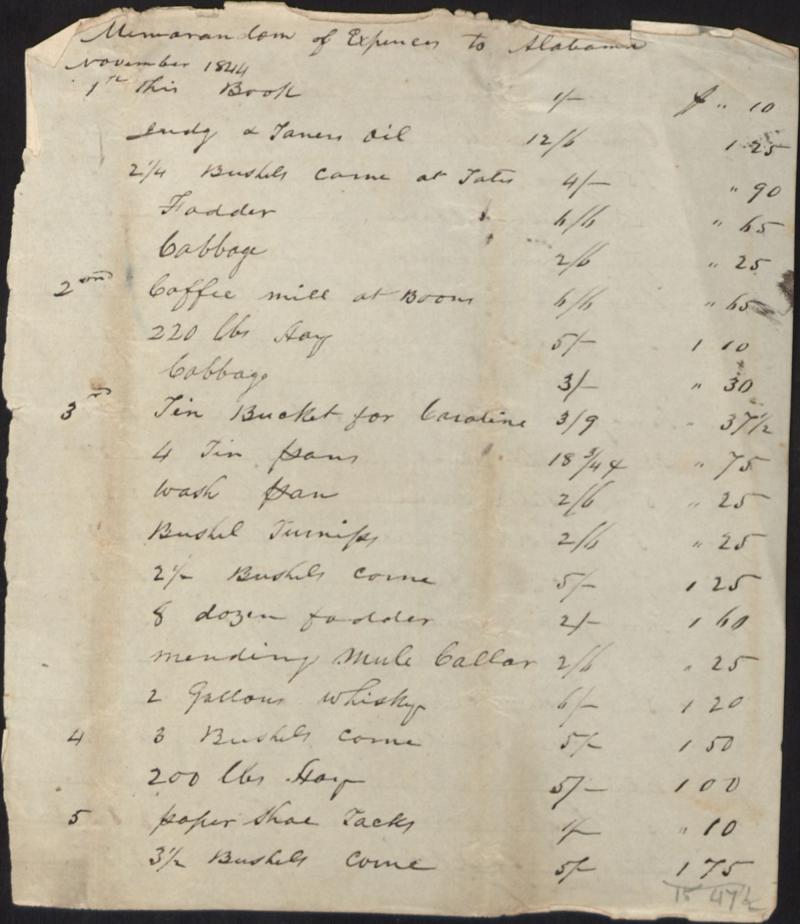 Memorandom of Expences to Alabama
November 1844
1th this Book 1/- $ " 10
& Taners Oil 12/6 1 25
2 1/4 Bushels corne at Tates 4/- " 90
Fodder 6/6 " 65
Cabbage 2/6 " 25
2ond Coffee mill at Boons 6/6 " 65
220 lbs Hay 5/- 1 10
Cabbage 3/- " 30
3rd Tin Bucket for Caroline 3/9 " 37 1/2
4 Tin pans " 75
wash pan 2/6 " 25
Bushel Turnips 2/6 " 25
2 1/2 Bushels corne 5/- 1 25
8 dozen fodder 2/- 1 60
mending Mule Collar 2/6 " 25
2 Gallons whiskey 6/- 1 20
4 3 Bushels corne 5/- 1 50
200 lbs Hay 5/- 1 00
5 paper Shoe Tacks 1/- " 10
3 1/2 Bushels corne 5/- 1 75
15 47 1/2